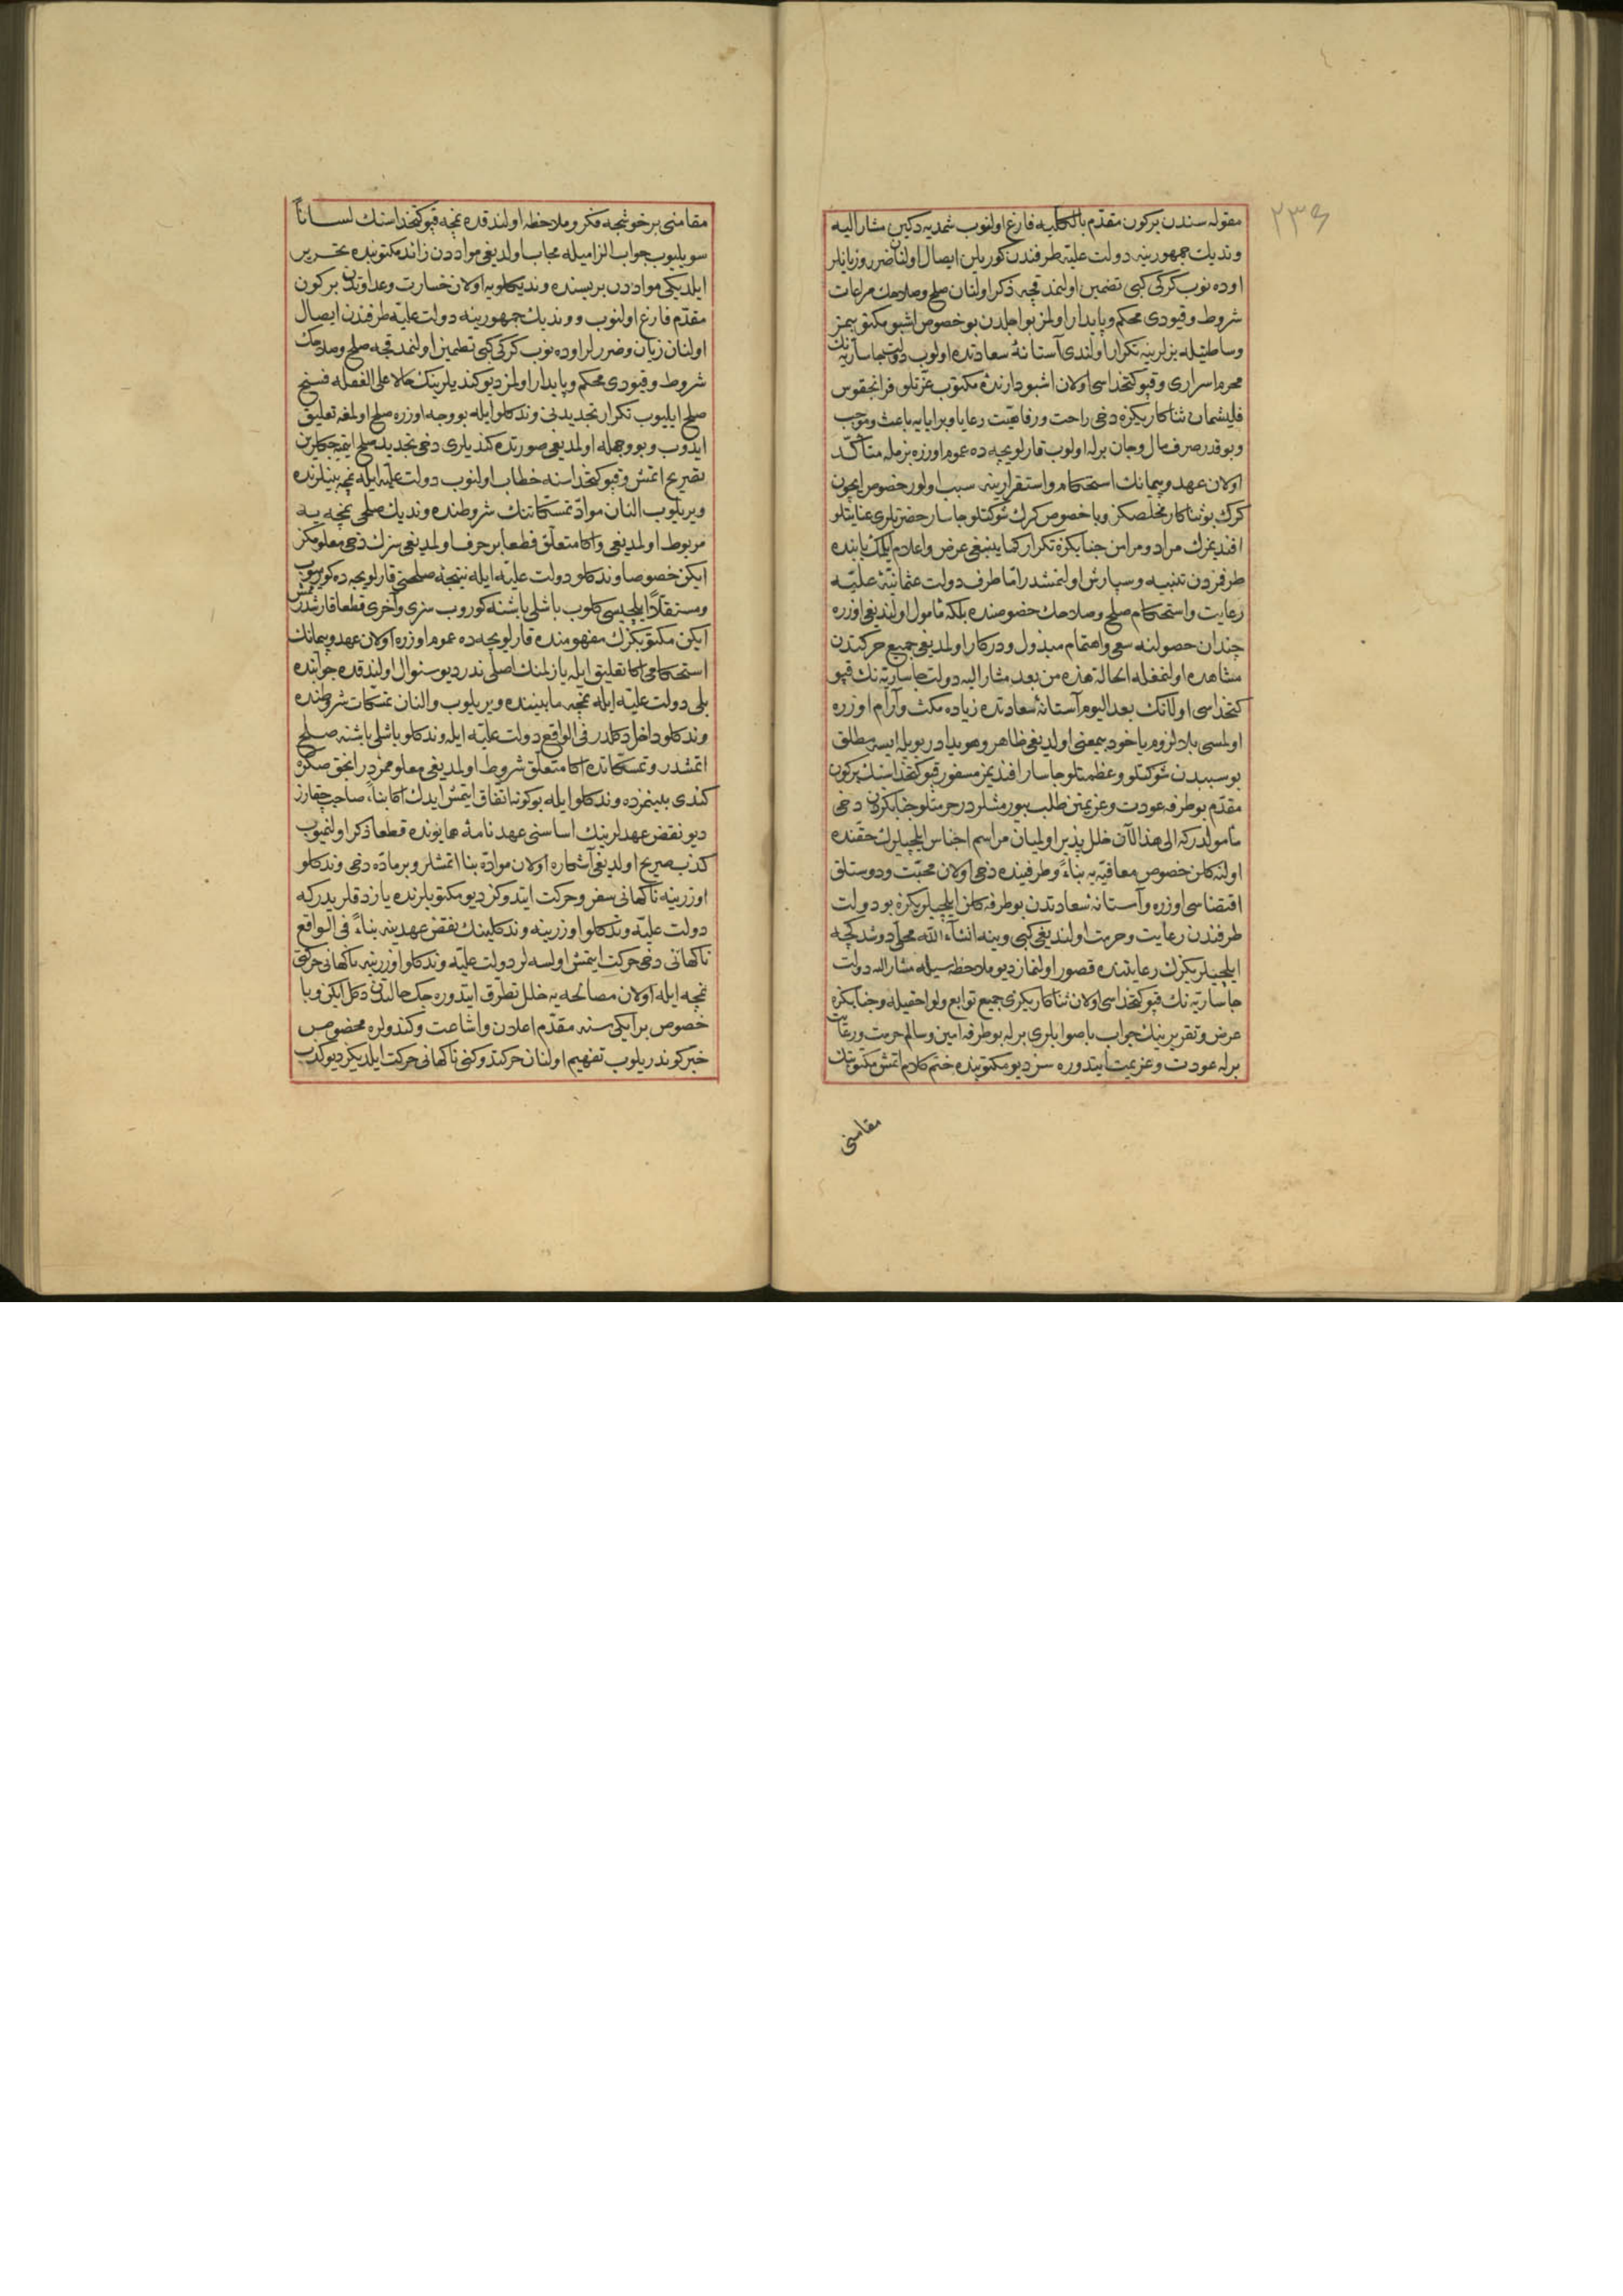 ٢٣٤
مقوله سندن بركون مقدّم بالكليه فارغ اولنوب شمديه دكين مشار اليه
ونديك جمهورينه دولت عليّه طرفندن كوريلن ايصال اولنان ضرر وزيانلر
اوده نوب كركى كبى تضمين اولنمدقجه ذكر اولنان صلح وصلاحك مراعات
شروط وقيودى محكم وپايدار اولمز بو اجلدن بو خصوص اشبو مكتوبيمز
وساطتيله بزلرينه تكرار اولندى آستانهٔ سعادتده اولوب دولت چاساريه نك
محرم اسرارى وقپو كتخداسى اولان اشبو دارندهٔ مكتوب عزتلو فرانچقوس
قليشمان ثناكاريكزه دخى راحت ورفاهيت رعايا وبرايايه باعث وموجب
وبو قدر صرف مال وجان برله اولوب قارلويجه ده عموم اوزره بزمله متأكّد
اولان عهد وپيمانك استحكام واستقرارينه سبب اولور خصوص ايچون
كرك بو ثناكار مخلصكز وبا خصوص كرك شوكتلو چاسار حضرتلرى عنايتلو
افنديمزك مراد ومرامن جنابكزه تكرار كما ينبغى عرض واعلام ايلمك بابنده
طرفمزدن تنبيه وسپارش اولنمشدر امّا طرف دولت عثمانيّهٔ عليّه
رعايت واستحكام صلح وصلاحك خصوصنده بلكه مأمول اولنديغى اوزره
چندان حصولنه سعى واهتمام مبذول ودركار اولمديغى جميع حركتدن
مشاهده اولنمغله الحالة هذه من بعد مشار اليه دولت چاساريه نك قپو
كتخداسى اولانك بعد اليوم آستانهٔ سعادتده زياده مكث وآرام اوزره
اولمسى بلا لزوم ياخود بيمعنى اولديغى ظاهر وهويدادر بويله ايسه مطلق
بو سببدن شوكتلو وعظمتلو چاسار افنديمز مسفور قپو كتخداسنك بركون
مقدّم بو طرفه عودت وعزيمتن طلب بيورمشلردر حرمتلو جنابكزدن دخى
مأمولدركه الى هذا الآن خلل پذير اوليان مراسم اجناس ايلچيلرك حقنده
اولنه كلن خصوص معافيّه يه بناءً وطرفينده دخى اولان محبّت ودوستلق
اقتضاسى اوزره وآستانهٔ سعادتدن بو طرفه كلن ايلچيلريكزه بو دولت
طرفندن رعايت وحرمت اولنديغى كبى وينه انشاء الله محلّى دوشدكجه
ايلچيلريكزك رعايتنده قصور اولنماز ديو ملاحظه سيله مشار اليه دولت
چاساريّه نك قپو كتخداسى اولان ثناكاريكزى جميع توابع ولواحقيله وجنابكزه
عرض وتقريرينك جواب باصوابلرى برله بو طرفه امين وسالم حرمت ورعايت
برله عودت وعزيمت ايتدوره سز ديو مكتوبنده ختم كلام اتمش مكتوبنك
مقامنى
مقامنى بر خوشجه فكر وملاحظه اولندقده نمچه قپو كتخداسنك لساناً
سويليوب جواب الزاميله مجاب اولديغى موادّدن زائد مكتوبنده تحرير
ايلديكى موادّدن بريسنده ونديكلويه اولان خسارت وعداوتدن بركون
مقدّم فارغ اولنوب وونديك جمهورينه دولت عليّه طرفندن ايصال
اولنان زيان وضررلر اوده نوب كركى كبى تطمين اولنمدقجه صلح وصلاحك
شروط وقيودى محكم وپايدار اولمز ديو كنديلرينك حالا على الغفله فسخ
صلح ايليوب تكرار تجديدنى وندكلو ايله بو وجه اوزره صلح اولمغه تعليق
ايدوب وبو وجهله اولمديغى صورتده كنديلرى دخى تجديد صلح ايتميه جكلرين
تصريح اتمش وقپو كتخداسنه خطاب اولنوب دولت عليّه ايله نمچه بينلرنده
ويريلوب النان موادّ تمسّكاتنك شروطنده ونديك صلحى نمچه يه
مربوط اولمديغى واكا متعلّق قطعا بر حرف اولمديغى سزك دخى معلومكز
ايكن خصوصا وندكلو دولت عليّه ايله نتيجهٔ صلحنى قارلويجه ده كورميوب
ومستقلّاً ايلچيسى كلوب باشلى باشنه كوروب سزى وآخرى قطعا قارشدرمامش
ايكن مكتوبكزك مفهومنده قارلويجه ده عموم اوزره اولان عهد وپيمانك
استحكامى اكا تعليق ايله يازلمنك اصلى ندر ديو سئوال اولندقده جوابنده
بلى دولت عليّه ايله نمچه مابيننده ويريلوب والنان تمسّكات شروطنده
وندكلو داخل دكلدر فى الواقع دولت عليّه ايله وندكلو باشلى باشنه صلح
اتمشدر وتمسكاتده اكا متعلّق شروط اولمديغى معلوممزدر انجق صكره
كندى بينمزده وندكلو ايله بو كونه اتفاق ايتمش ايدك اكا بناءً صاحب چقارز
ديو نقض عهدلرينك اساسنى عهدنامهٔ همايونده قطعا ذكر اولنميوب
كذب صريح اولديغى آشكاره اولان موادّه بنا اتمشلر وبر مادّه دخى وندكلو
اوزرينه ناكهانى سفر وحركت ايتدوكز ديو مكتوبلرنده يازدقلريدركه
دولت عليّه وندكلو اوزرينه وندكلينك نقض عهدينه بناءً فى الواقع
ناكهانى دخى حركت ايتمش اولسه لر دولت عليّه وندكلو اوزرينه ناكهانى حركتى
نمچه ايله اولان مصالحه يه خلل تطرّق ايتدوره جك حالتدن دكل ايكن وبا
خصوص بر ايكى سنه مقدّم اعلان واشاعت وكندولره مخصوص
خبر كوندريلوب تفهيم اولنان حركتدوكنى ناكهانى حركت ايلديكز ديو كذب